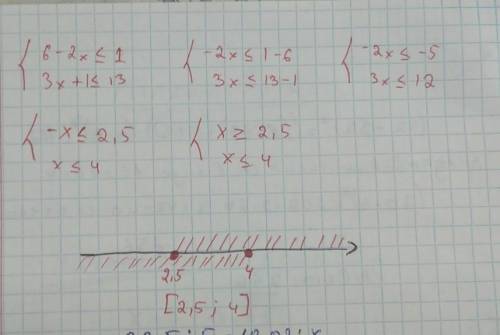 { 6 - 2x ≤ 1
3x + 1 ≤ 13
{ -2x ≤ 1 - 6
3x ≤ 13 - 1
{ -2x ≤ -5
3x ≤ 12
{ -x ≤ 2,5
x ≤ 4
{ x ≥ 2,5
x ≤ 4
2,5 4
[2,5 ; 4]